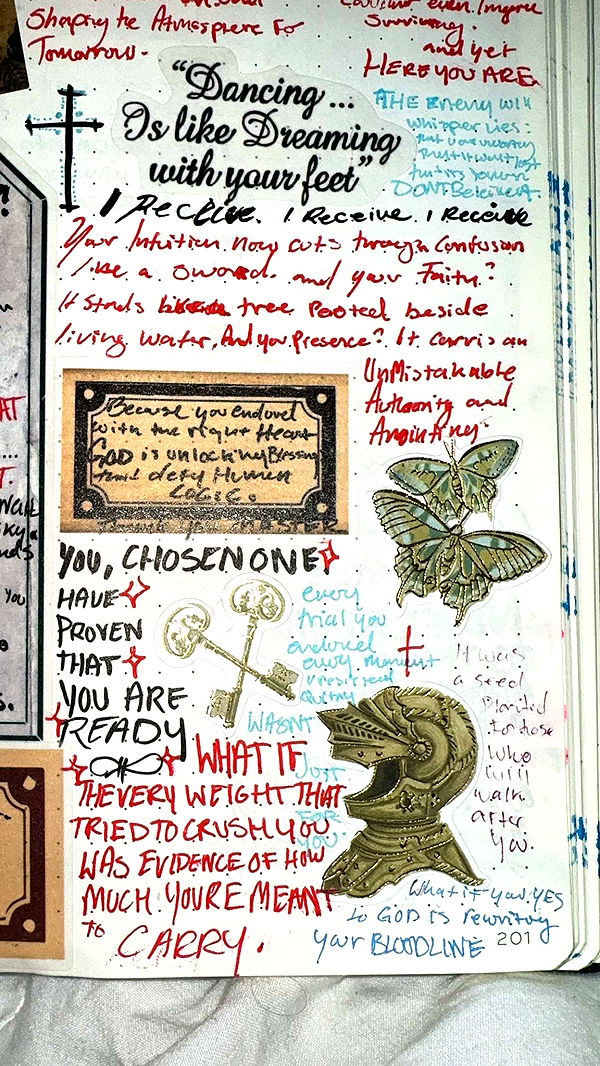 Shaping the Atmosphere for
Tomorrow.
Couldn't even imagine
Surviving.
and yet
HERE YOU ARE.
"Dancing...
Is like Dreaming
with your feet"
THE Enemy will
whisper lies:
DON'T Believe it.
I Receive. I Receive. I Receive
Your Intuition now cuts through Confusion
Like a sword. and your Faith?
It Stands like a tree Rooted beside
living water. And your presence? It carries an
UnMistakable
Authority and
Anointing.
Because you endured
with the right Heart
GOD is unlocking Blessings
that defy Human
LOGIC.
Thank you MASTER
YOU, CHOSEN ONE,
HAVE
PROVEN
THAT
YOU ARE
READY
every
trial you
endured
every moment
WASN'T
JUST
FOR
YOU.
It was
a seed
Planted
for those
who
will
walk
after
You.
WHAT IF
THE VERY WEIGHT THAT
TRIED TO CRUSH YOU
WAS EVIDENCE OF HOW
MUCH YOURE MEANT
to CARRY.
What if your YES
to GOD is rewriting
your BLOODLINE
201